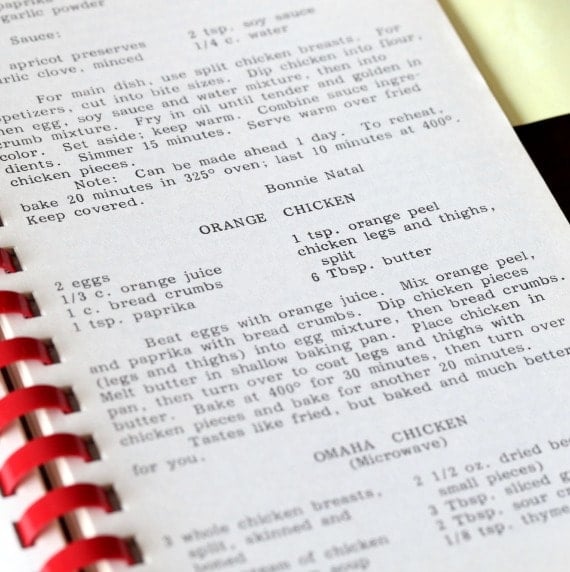 paprika
garlic powder
Sauce:
apricot preserves
garlic clove, minced
2 tsp. soy sauce
1/4 c. water
For main dish, use split chicken breasts. For
appetizers, cut into bite sizes. Dip chicken into flour,
then egg, soy sauce and water mixture, then into
crumb mixture. Fry in oil until tender and golden in
color. Set aside; keep warm. Combine sauce ingre-
dients. Simmer 15 minutes. Serve warm over fried
chicken pieces.
Note: Can be made ahead 1 day. To reheat,
bake 20 minutes in 325° oven; last 10 minutes at 400°.
Keep covered.
Bonnie Natal
ORANGE CHICKEN
2 eggs
1/3 c. orange juice
1 c. bread crumbs
1 tsp. paprika
1 tsp. orange peel
chicken legs and thighs,
split
6 Tbsp. butter
Beat eggs with orange juice. Mix orange peel,
and paprika with bread crumbs. Dip chicken pieces
(legs and thighs) into egg mixture, then bread crumbs.
Melt butter in shallow baking pan. Place chicken in
pan, then turn over to coat legs and thighs with
butter. Bake at 400° for 30 minutes, then turn over
chicken pieces and bake for another 20 minutes.
Tastes like fried, but baked and much better
for you.
OMAHA CHICKEN
(Microwave)
3 whole chicken breasts,
split, skinned and
boned
cream of chicken
soup
2 1/2 oz. dried bee
small pieces)
3 Tbsp. sliced g
2 Tbsp. sour cr
1/8 tsp. thyme